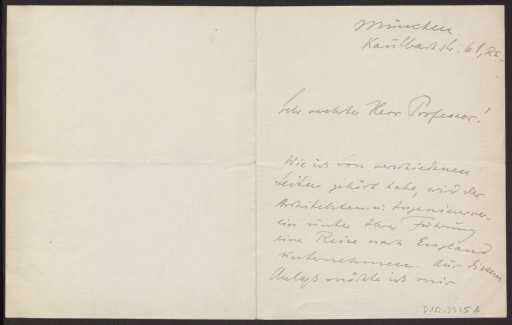 München
Kaulbachstr. 61,
Sehr verehrter Herr Professor!
Wie ich von verschiedenen
Seiten gehört habe, wird der
Architekten u. Ingenieurver-
ein unter Ihrer Führung
eine Reise nach England
unternehmen. Aus diesem
Anlaß möchte ich mir